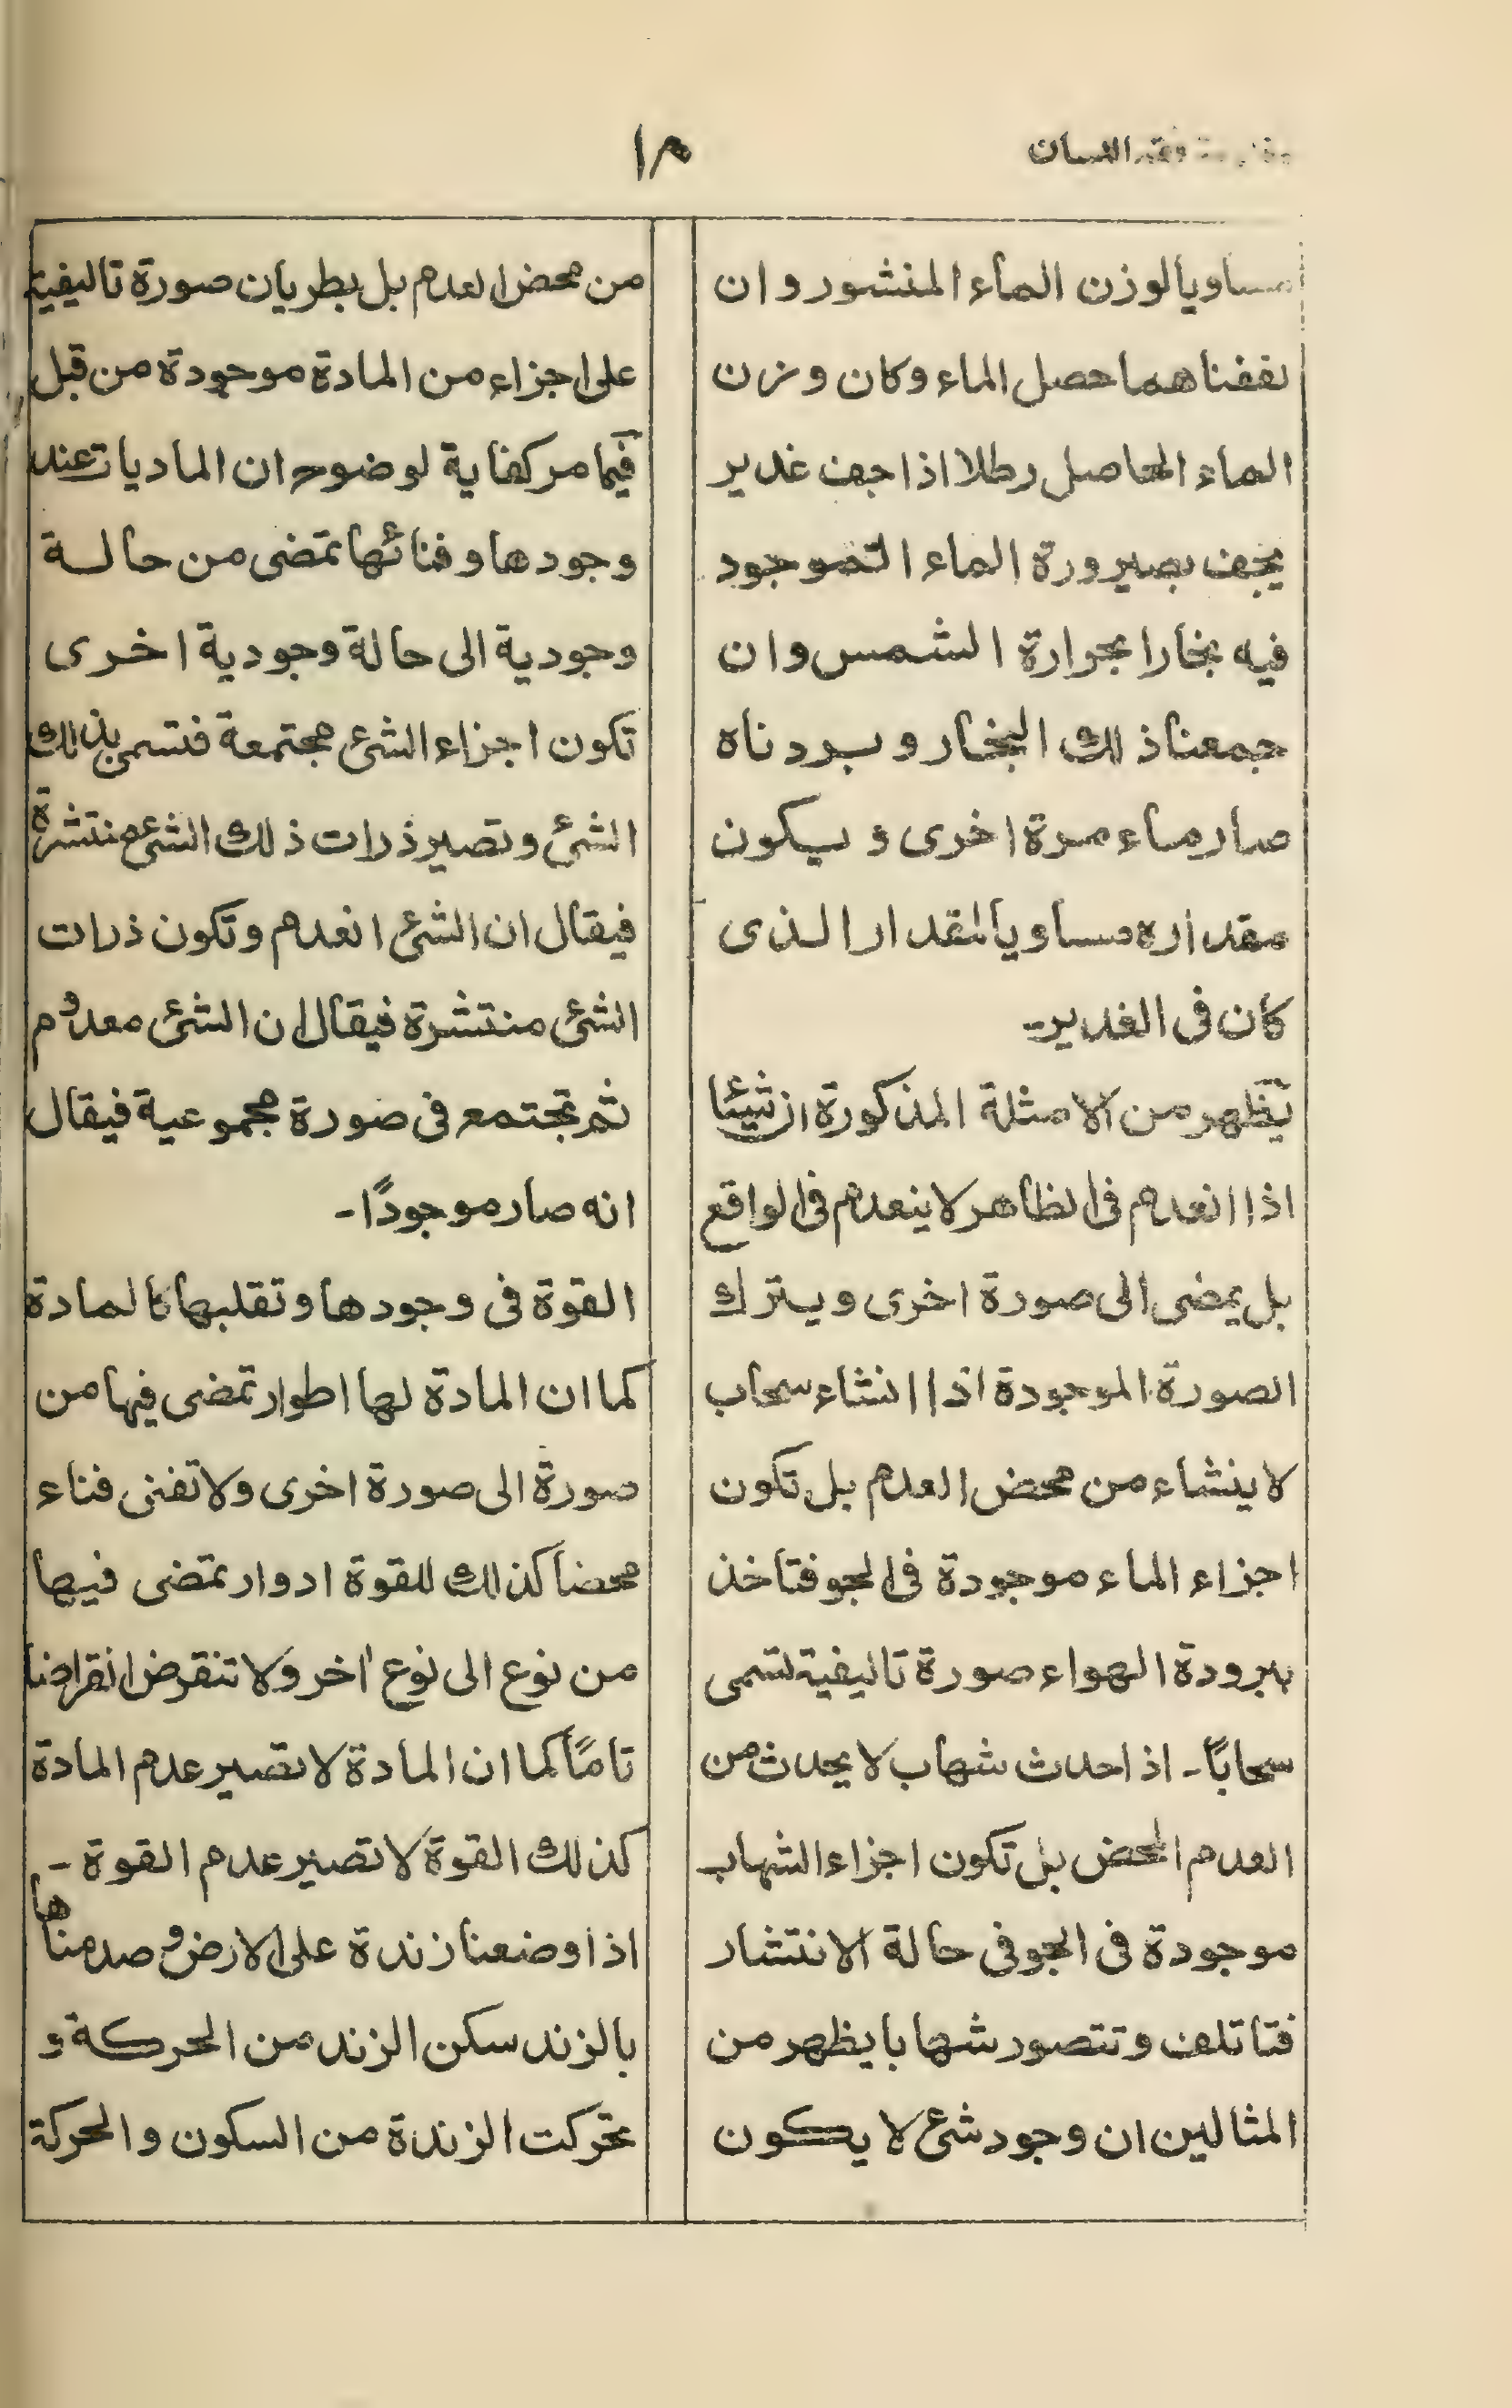 مقدمة فقه اللسان
١٨
مساويا لوزن الماء المنشور وان
لففناهما حصل الماء وكان وزن
الماء الحاصل رطلا اذا جف غدير
يجف بصيرورة الماء الموجود
فيه بخارا بحرارة الشمس وان
جمعنا ذلك البخار وبردناه
صار ماء مرة اخرى و يكون
مقداره مساويا لمقدار الذى
كان فى الغدير۔
يظهر من الامثلة المذكورة ان شيئا
اذا انعدم فى الظاهر لا ينعدم فى الواقع
بل يمضى الى صورة اخرى ويترك
الصورة الموجودة اذا انشاء سحاب
لا ينشاء من محض العدم بل تكون
اجزاء الماء موجودة فى الجو فتاخذ
ببرودة الهواء صورة تاليفية تسمى
سحابًا۔ اذا حدث شهاب لا يحدث من
العدم المحض بل تكون اجزاء الشهاب
موجودة فى الجو فى حالة الانتشار
فتاتلف وتتصور شهابا يظهر من
المثالين ان وجود شئ لا يكون
من محض العدم بل بطريان صورة تاليفية
على اجزاء من المادة موجودة من قبل
فيما مر كفاية لوضوح ان الماديات عند
وجودها وفنائها تمضى من حالة
وجودية الى حالة وجودية اخرى
تكون اجزاء الشئ مجتمعة فتسمى بذلك
الشئ وتصير ذرات ذلك الشئ منتشرة
فيقال ان الشئ انعدم وتكون ذرات
الشئ منتشرة فيقال ان الشئ معدوم
ثم تجتمع فى صورة مجموعية فيقال
انه صار موجودًا۔
القوة فى وجودها وتقلبها كالمادة
كما ان المادة لها اطوار تمضى فيها من
صورة الى صورة اخرى ولا تفنى فناء
محضا كذلك للقوة ادوار تمضى فيها
من نوع الى نوع اخر ولا تنقرض انقراضا
تامًا كما ان المادة لا تصير عدم المادة
كذلك القوة لا تصير عدم القوة ۔
اذا وضعنا زندة على الارض و صدمناها
بالزند سكن الزند من الحركة و
تحركت الزندة من السكون والحركة